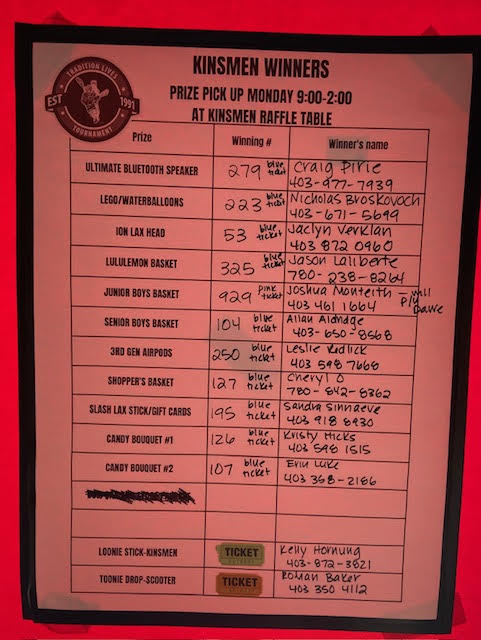 KINSMEN WINNERS
PRIZE PICK UP MONDAY 9:00-2:00
AT KINSMEN RAFFLE TABLE
TRADITION LIVES
EST 1991
TOURNAMENT
Prize Winning # Winner's name
ULTIMATE BLUETOOTH SPEAKER 279 blue ticket Craig Pirie
403-977-7939
LEGO/WATERBALLOONS 223 blue ticket Nicholas Broskovoch
403-671-5699
ION LAX HEAD 53 blue ticket Jaclyn Verklan
403 872 0960
LULULEMON BASKET 325 blue ticket Jason Laliberte
780-238-8264
JUNIOR BOYS BASKET 929 pink ticket Joshua Monteith - will
403 461 1664 P/U
Dawe
SENIOR BOYS BASKET 104 blue ticket Allan Aldridge
403-650-8568
3RD GEN AIRPODS 250 blue ticket Leslie Kidlick
403 598 7668
SHOPPER'S BASKET 127 blue ticket Cheryl O
780-842-8362
SLASH LAX STICK/GIFT CARDS 195 blue ticket Sandra Sinnaeve
403 918 8930
CANDY BOUQUET #1 126 blue ticket Kristy Hicks
403 598 1515
CANDY BOUQUET #2 107 blue ticket Erin Luke
403 358-2186
LOONIE STICK-KINSMEN TICKET Kelly Hornung
403-872-3821
TOONIE DROP-SCOOTER TICKET Roman Baker
403 350 4112